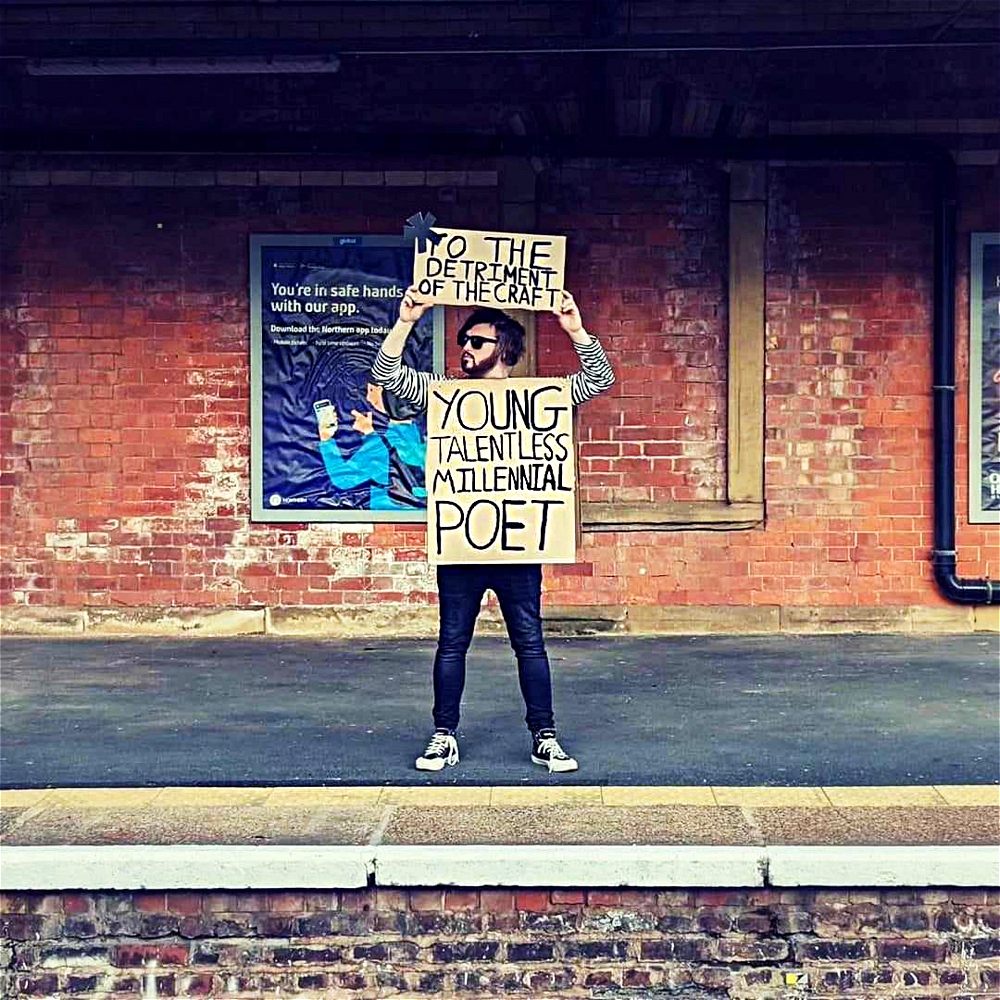 TO THE
DETRIMENT
OF THE CRAFT
YOUNG
TALENTLESS
MILLENNIAL
POET
global
You're in safe hands
with our app.
Download the Northern app today
NORTHERN